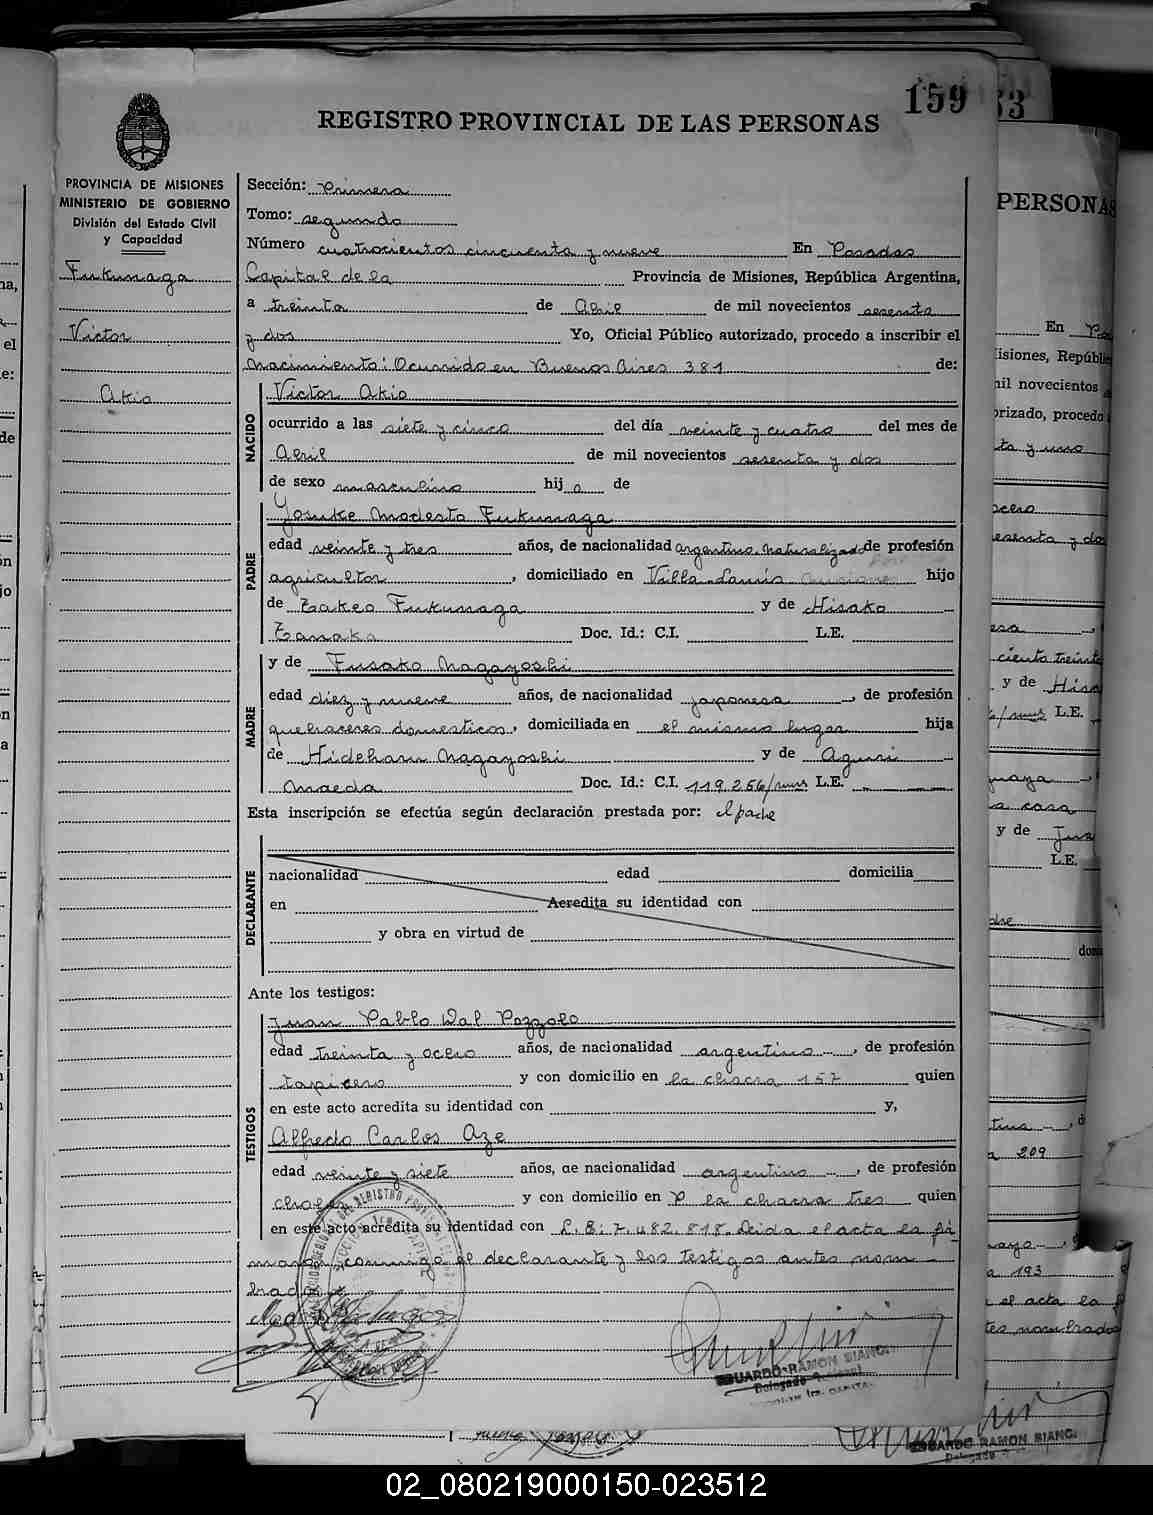 159
REGISTRO PROVINCIAL DE LAS PERSONAS
PROVINCIA DE MISIONES
MINISTERIO DE GOBIERNO
División del Estado Civil
y Capacidad
Fukunaga
Victor
Akio
Sección: Primera
Tomo: segundo
Número cuatrocientos cincuenta y nueve En Posadas
Capital de la Provincia de Misiones, República Argentina,
a treinta de Abril de mil novecientos sesenta
y dos Yo, Oficial Público autorizado, procedo a inscribir el
Nacimiento: Ocurrido en Buenos Aires 381 de:
NACIDO
Victor Akio
ocurrido a las siete y cinco del día veinte y cuatro del mes de
Abril de mil novecientos sesenta y dos
de sexo masculino hij o de
PADRE
Yosuke Modesto Fukunaga
edad veinte y tres años, de nacionalidad argentino naturalizado de profesión
agricultor, domiciliado en Villa Lanús hijo
de Takeo Fukunaga y de Hisako
Tanaka Doc. Id.: C.I. L.E.
MADRE
y de Fusako Nagayoshi
edad diez y nueve años, de nacionalidad japonesa, de profesión
quehaceres domesticos, domiciliada en el mismo lugar hija
de Hideharu Nagayoshi y de Aguri
Maeda Doc. Id.: C.I. 119.256/mnes L.E.
Esta inscripción se efectúa según declaración prestada por: el padre
DECLARANTE
nacionalidad edad domicilia
en Acredita su identidad con
y obra en virtud de
Ante los testigos:
TESTIGOS
Juan Pablo Dal Pozzolo
edad treinta y ocho años, de nacionalidad argentino, de profesión
tapicero y con domicilio en la chacra 157 quien
en este acto acredita su identidad con y,
Alfredo Carlos Aze
edad veinte y siete años, de nacionalidad argentino, de profesión
chofer y con domicilio en la chacra tres quien
en este acto acredita su identidad con 7.482.818. Leida el acta la fir
man conmigo el declarante y los testigos antes nom
brados
EDUARDO RAMON BIANCHI
Delegado
PERSONAS
02_080219000150-023512